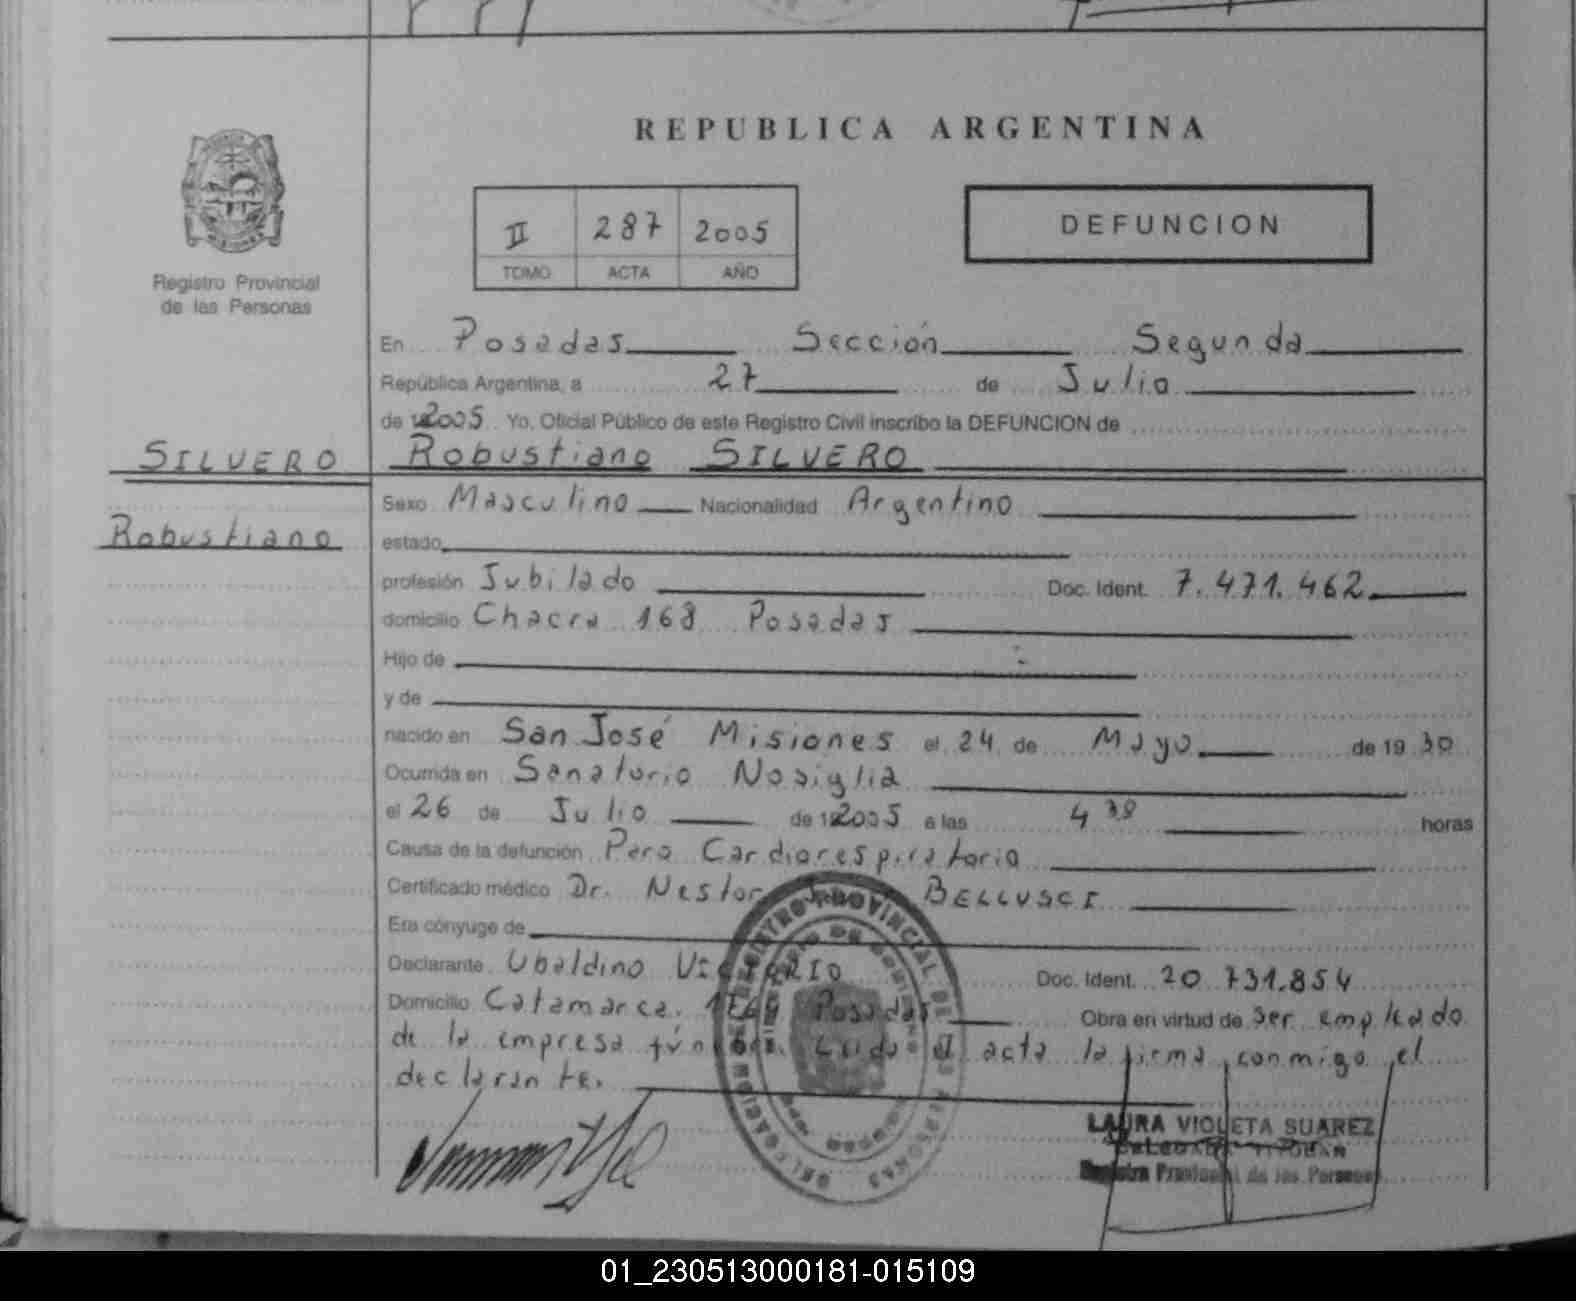 REPUBLICA ARGENTINA
II 287 2005
TOMO ACTA AÑO
DEFUNCION
Registro Provincial
de las Personas
En Posadas Sección Segunda
República Argentina, a 27 de Julio
de 2005 Yo, Oficial Público de este Registro Civil inscribo la DEFUNCION de
SILVERO
Robustiano SILVERO
Robustiano
Sexo Masculino Nacionalidad Argentino
estado
profesión Jubilado Doc. Ident. 7.471.462
domicilio Chacra 168 Posadas
Hijo de
y de
nacido en San José Misiones el 24 de Mayo de 19 30
Ocurrida en Sanatorio Nosiglia
el 26 de Julio de 2005 a las 4 38 horas
Causa de la defunción Paro Cardiorespiratorio
Certificado médico Dr. Nestor BELLUSCI
Era cónyuge de
Declarante Ubaldino VICTORIO Doc. Ident. 20 731.854
Domicilio Catamarca Posadas Obra en virtud de ser empleado
de la empresa Leida el acta la firma conmigo el
declarante.
REGISTRO PROVINCIAL DE LAS PERSONAS
LAURA VIOLETA SUAREZ
DELEGADA TITULAR
Registro Provincial de las Personas
01_230513000181-015109